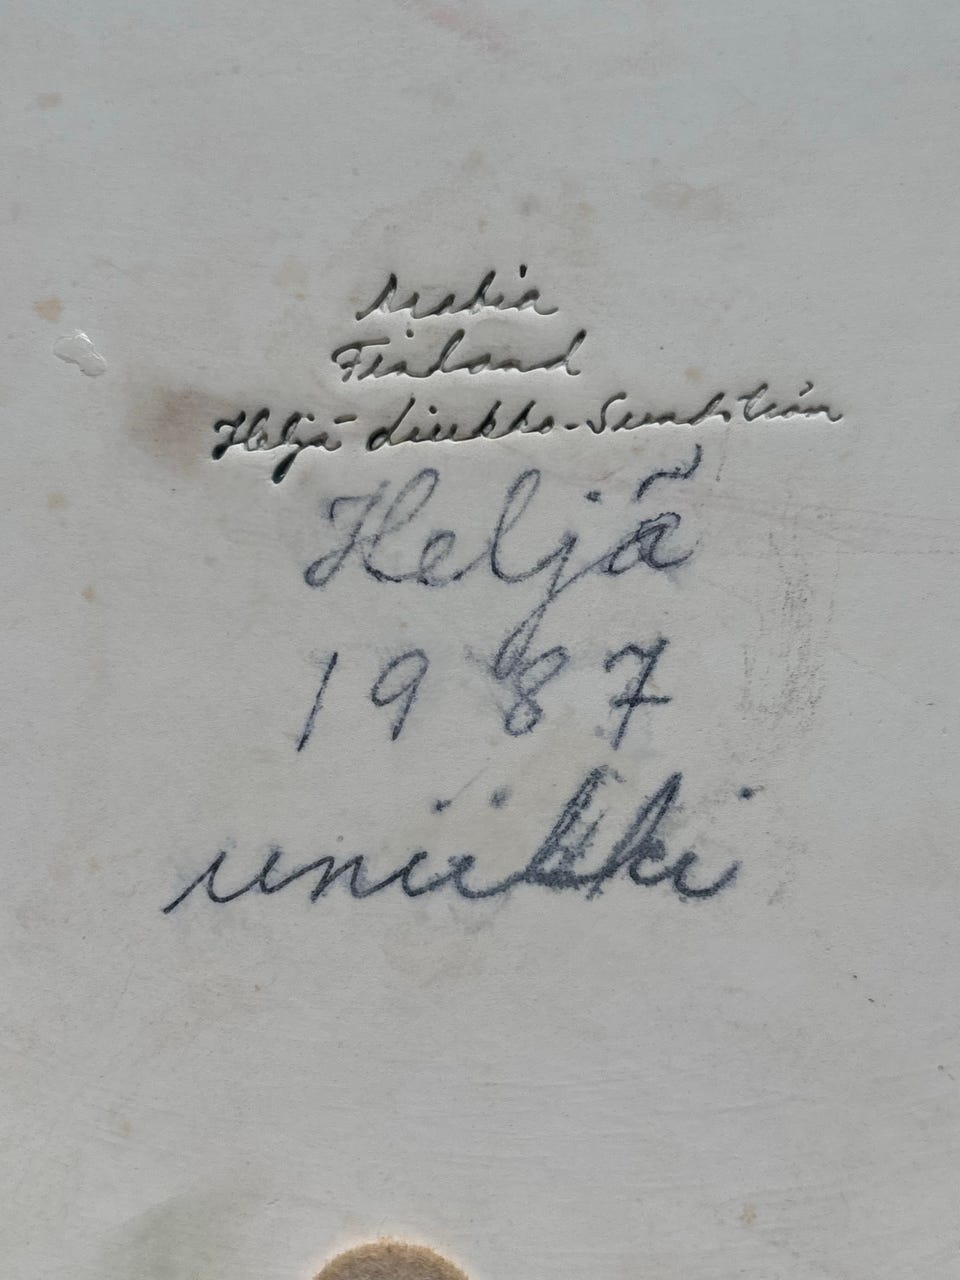 Arabia
Finland
Heljä Liukko-Sundström
Heljä
1987
uniikki